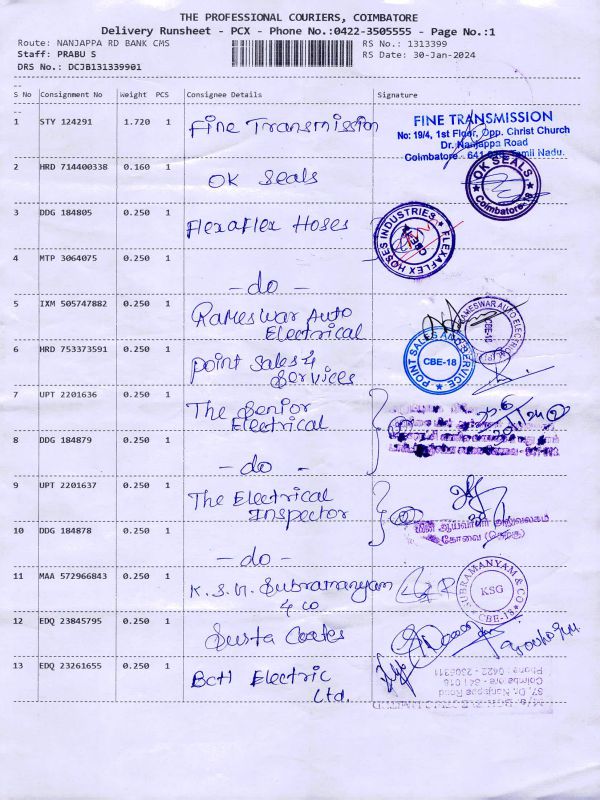 THE PROFESSIONAL COURIERS, COIMBATORE
Delivery Runsheet - PCX - Phone No.:0422-3505555 - Page No.:1
Route: NANJAPPA RD BANK CMS RS No.: 1313399
Staff: PRABU S RS Date: 30-Jan-2024
DRS No.: DCJB131339901
S No Consignment No Weight PCS Consignee Details Signature
1 STY 124291 1.720 1 Fine Transmission
FINE TRANSMISSION
No: 19/4, 1st Floor, Opp. Christ Church
Dr. Nanjappa Road
Coimbatore - 641 018. Tamil Nadu.
2 HRD 714400338 0.160 1 OK Seals
OK SEALS
Coimbatore-18
3 DDG 184805 0.250 1 Flexaflex Hoses
FLEXAFLEX HOSES INDUSTRIES
4 MTP 3064075 0.250 1 - do -
5 IXM 505747882 0.250 1 Rameswar Auto
Electrical
RAMESWAR AUTO ELECTRICAL
CBE-18
6 HRD 753373591 0.250 1 Point Sales &
Services
POINT SALES AND SERVICE
CBE-18
7 UPT 2201636 0.250 1 The Senior
Electrical
8 DDG 184879 0.250 1 - do -
9 UPT 2201637 0.250 1 The Electrical
Inspector
மின் ஆய்வாளர் அலுவலகம்
கோவை (தெற்கு)
10 DDG 184878 0.250 1 - do -
11 MAA 572966843 0.250 1 K.S.G. Subramanyam
& Co
SUBRAMANYAM & CO
KSG
CBE-18
12 EDQ 23845795 0.250 1 Susta Coates
13 EDQ 23261655 0.250 1 BCH Electric
Ltd.
87, Dr. Nanjappa Road
Coimbatore - 641 018
Phone : 0422 -